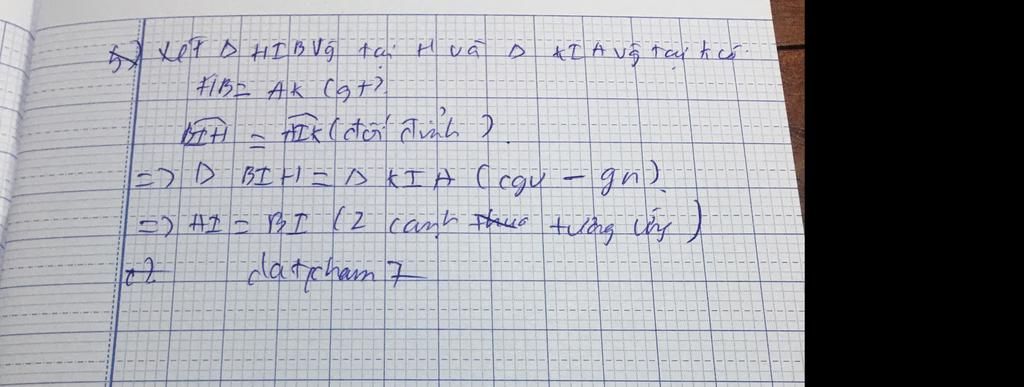 b) Xét Δ HIB vg tại H và Δ KIA vg tại K có
HB = AK (gt)
BIH = AIK (đối đỉnh)
=> Δ BIH = Δ KIA (cgv - gn)
=> AI = BI (2 cạnh tương ứng)
datcham7